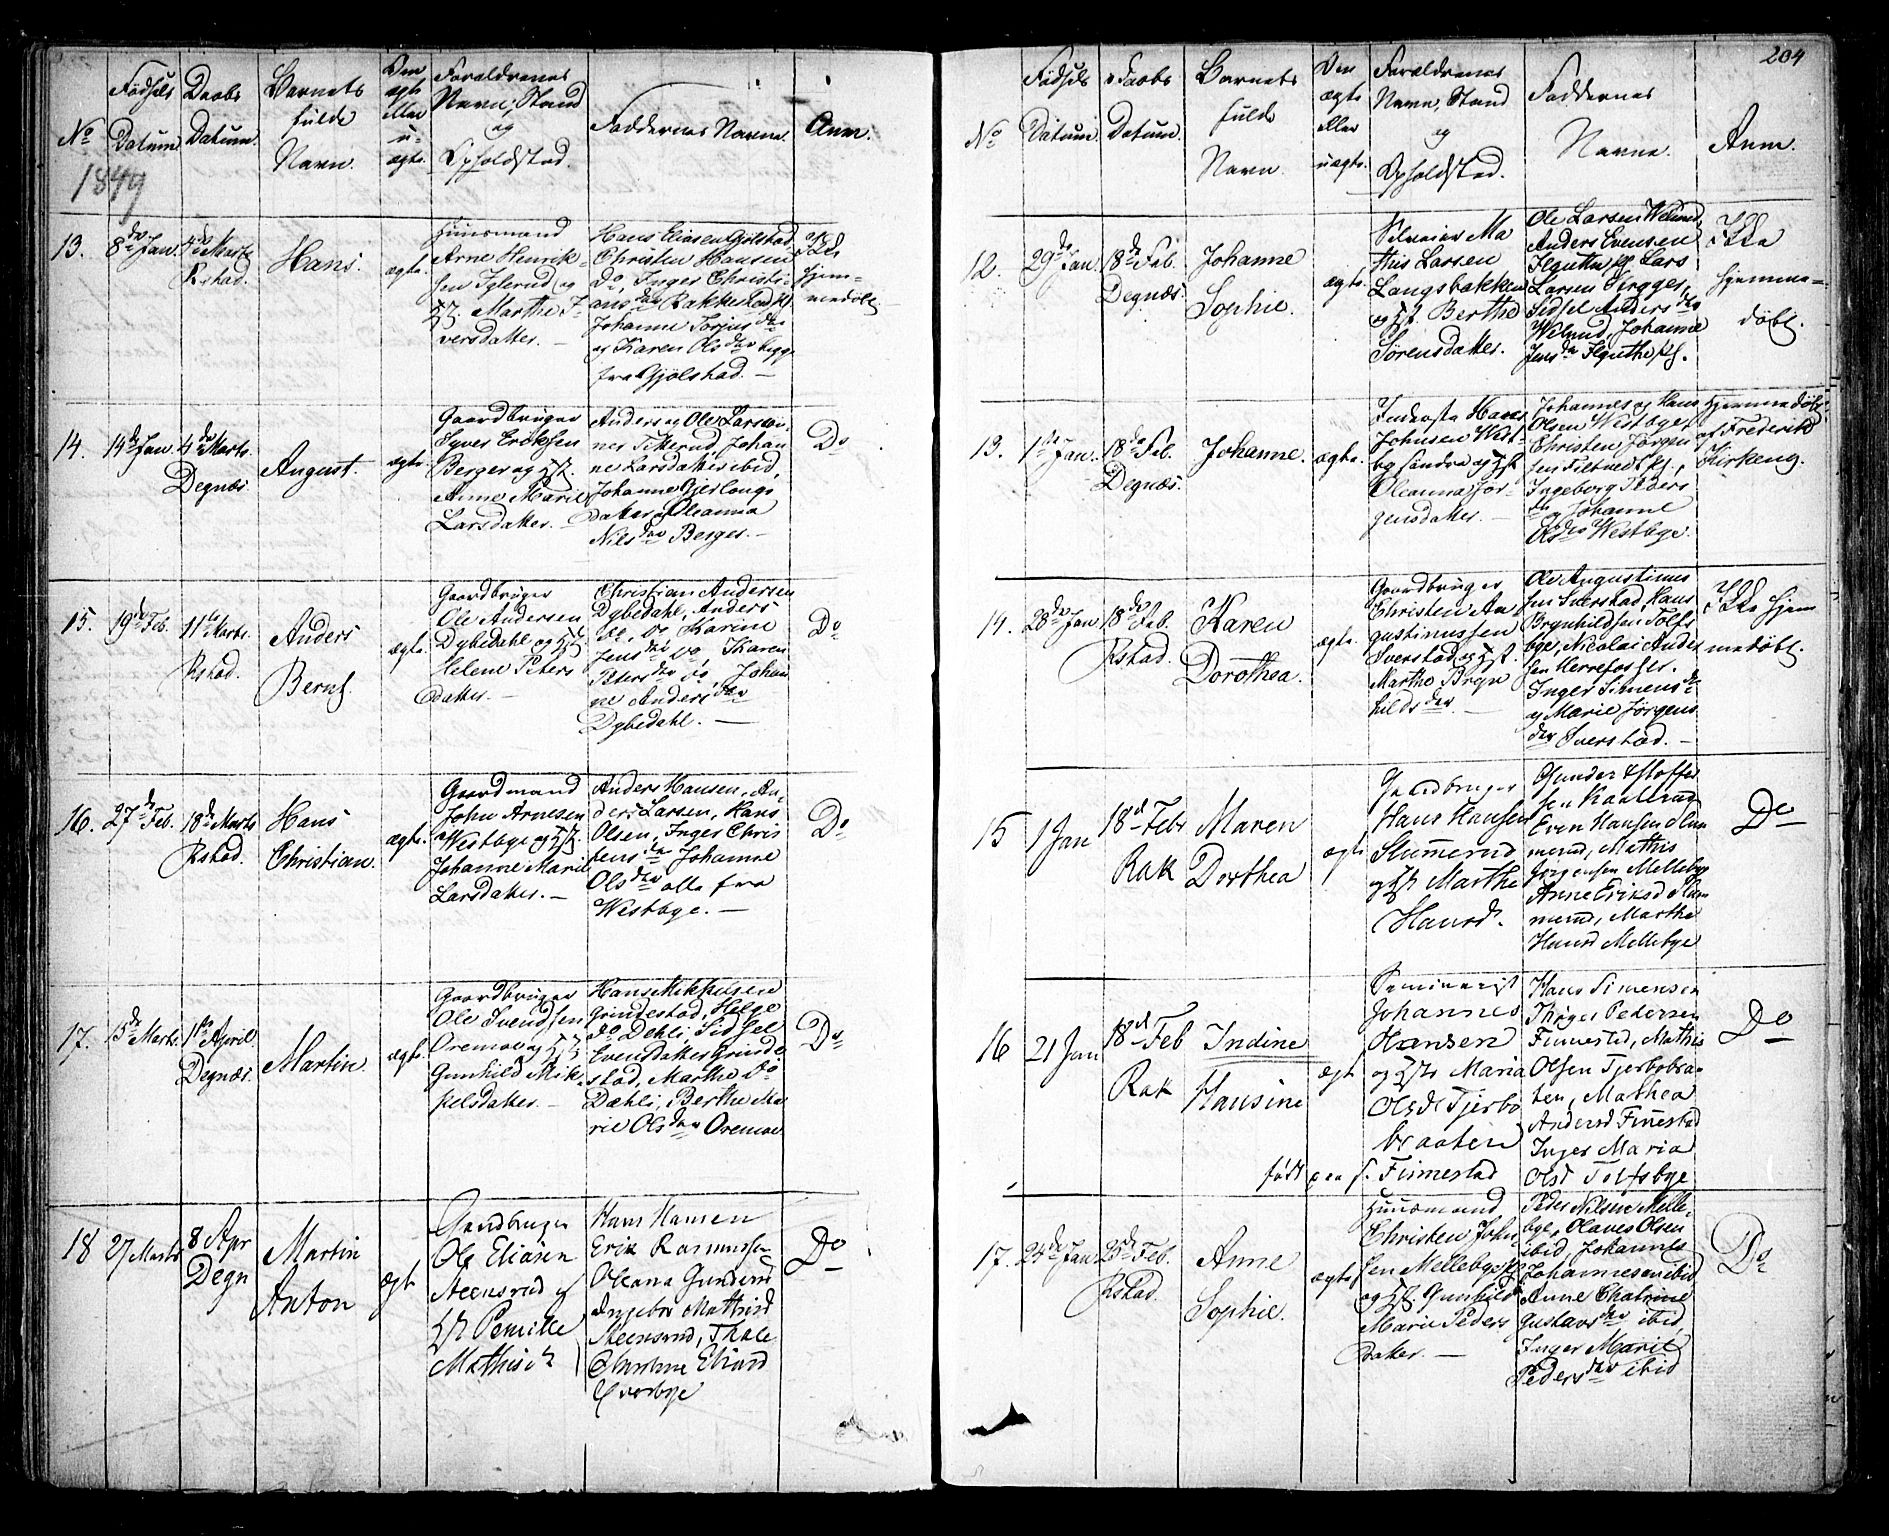 204
No
Fødsels Datum
Daabs Datum.
Barnets fulde Navn.
Om ægte eller u-ægte.
Forældrenes Navn, Stand og Opholdsted.
Faddernes Navne.
Anm.
1849
13.
8de Jan.
4de Marts
Rstad.
Hans.
ægte.
Huusmand
Arne Henrik-
sen Iglerud og
Hst. Marthe I-
versdatter. —
Hans Eliasen Gjølstad,
Christen Hansen
Do, Inger Christi-
ansdtr Rakkestad
Johanne Torjusdtr
og Karen Olsdtr begge
fra Gjølstad. —
Ikke
hjem-
medøbt.
14.
14de Jan.
4de Marts.
Degnæs
August.
ægte
Gaardbruger
Syver Eriksen
Berger og Hst.
Anne Marie
Larsdatter. —
Anders og Ole Larssøn-
ner Titterud, Johan
ne Larsdatter ibid,
Johanne Gjerlougs
datter og Oleanna
Nilsdtr Berger. —
Do
15.
19de Feb.
11te Marts.
Rstad.
Anders
Bernt.
ægte.
Gaardbruger
Ole Andersen
Dybedahl og Hst
Helene Peters
datter. —
Christian Andersen
Dybedahl, Anders
Do, Do Karine
Jensdtr Do, Karen
Petersdtr Do, Johan
ne Andersdtr
Dybedahl. —
Do
16.
27de Feb.
18de Marts
Rstad.
Hans
Christian.
ægte.
Gaardmand
John Arnesen
Westbye og Hst.
Johanne Marie
Larsdatter. —
Anders Hansen, An-
ders Larsen, Hans
Olsen, Inger Chris
tensdtr Johanne
Olsdtr alle fra
Westbye. —
Do
17.
15de Marts.
1ste April.
Degnæs.
Martin.
ægte.
Gaardbruger
Ole Svendsen
Oremoe og Hst
Gunhild Mik-
kelsdatter. —
Hans Mikkelsen
Grindestad, Helge
Do Dæhli, Sidsel
Evensdatter Grinde
stad, Marthe Do
Dæhli, Berthe Ma
rie Olsdtr Oremoe
Do
18
27 Marts
8 Apr
Degn
Martin
Anton
ægt
Gaardbruger
Ole Eliasen
Steensrud og
Hst Pernille
Mathisdt
Hans Hansen
Erik Rasmussen
Oleana Gundersd
Ingebor Mathisd
Steensrud, Thale
Christine Eliasd
Do
No
Fødsels Datum
Daabs Datum.
Barnets fulde Navn
Om ægte eller uægte.
Forældrenes Navn, Stand og Opholdsted.
Faddernes Navne.
Anm.
12.
29de Jan.
18de Feb.
Degnæs.
Johanne
Sophie.
ægte.
Selveier Ma
this Larsen
Langsbakken
og Hst. Berthe
Sørensdatter.
Ole Larsen Welund,
Anders Evensen
Lars
Larsen
Sidsel Andersdtr
Welund, Johanne
Jensdtr
Ikke
hjemme-
døbt.
13.
1ste Jan.
18de Feb.
Degnæs.
Johanne.
ægte.
Inderste Hans
Johnsen West-
by søndre og Hst
Oleanna Jør-
gensdatter. —
Johannes og Hans
Olsen Westbye,
Christen Jørgen
sen
Ingeborg Peders
dtr og Johanne
Olsdtr Westbye.
Hjemmedøbt
af Frederik
Kirkeng.
14.
28de Jan
18de Feb.
Rstad.
Karen
Dorothea.
ægte.
Gaardbruger
Christen Au
gustinussen
Sverstad og Hst.
Marthe Bryn
hildsdtr. —
Ole Augustinus
sen Sverstad, Hans
Brynhildsen Tolfs
bye, Nicolai Ander
sen Herrefosser.
Inger Simensdtr
og Marie Jørgens
dtr Sverstad. —
Ikke hjem
medøbt.
15
1 Jan
18d Febr
Rak
Maren
Dorthea
ægte
Gaardbruger
Hans Hansen
Slummerud
og Hst Marthe
Hansd.
Gunder Kloffer
sen Kaatterud
Even Hansen Slum
merud, Mathis
Jørgensen Mellebye
Anne Eriksd Slum
merud, Marthe
Hansd Mellebye
Do
16
21 Jan
18d Feb
Rak
Indine
Hansine
ægt
Seminarist
Johannes
Hansen
og Hst Maria
Olsdt Tjerbo
braaten
født paa s. Finnestad
Hans Simensen
Thøger Pedersen
Finnestad, Mathis
Olsen Tjerbobra-
ten, Mathea
Andersd Finnestad
Inger Maria
Olsd Tolfsbye
Do
17.
24de Jan
25de Feb.
Rstad.
Anne
Sophie.
ægte
Huusmand
Christen Johan-
sen Mellebye
og Hst. Gunhild
Marie Peders
datter. —
Peder Nilsen Melle-
bye, Olaves Olsen
ibid, Johannes
Johannesen ibid
Anne Chatrine
Gustavsdtr ibid,
Inger Marie
Pedersdtr ibid
Do